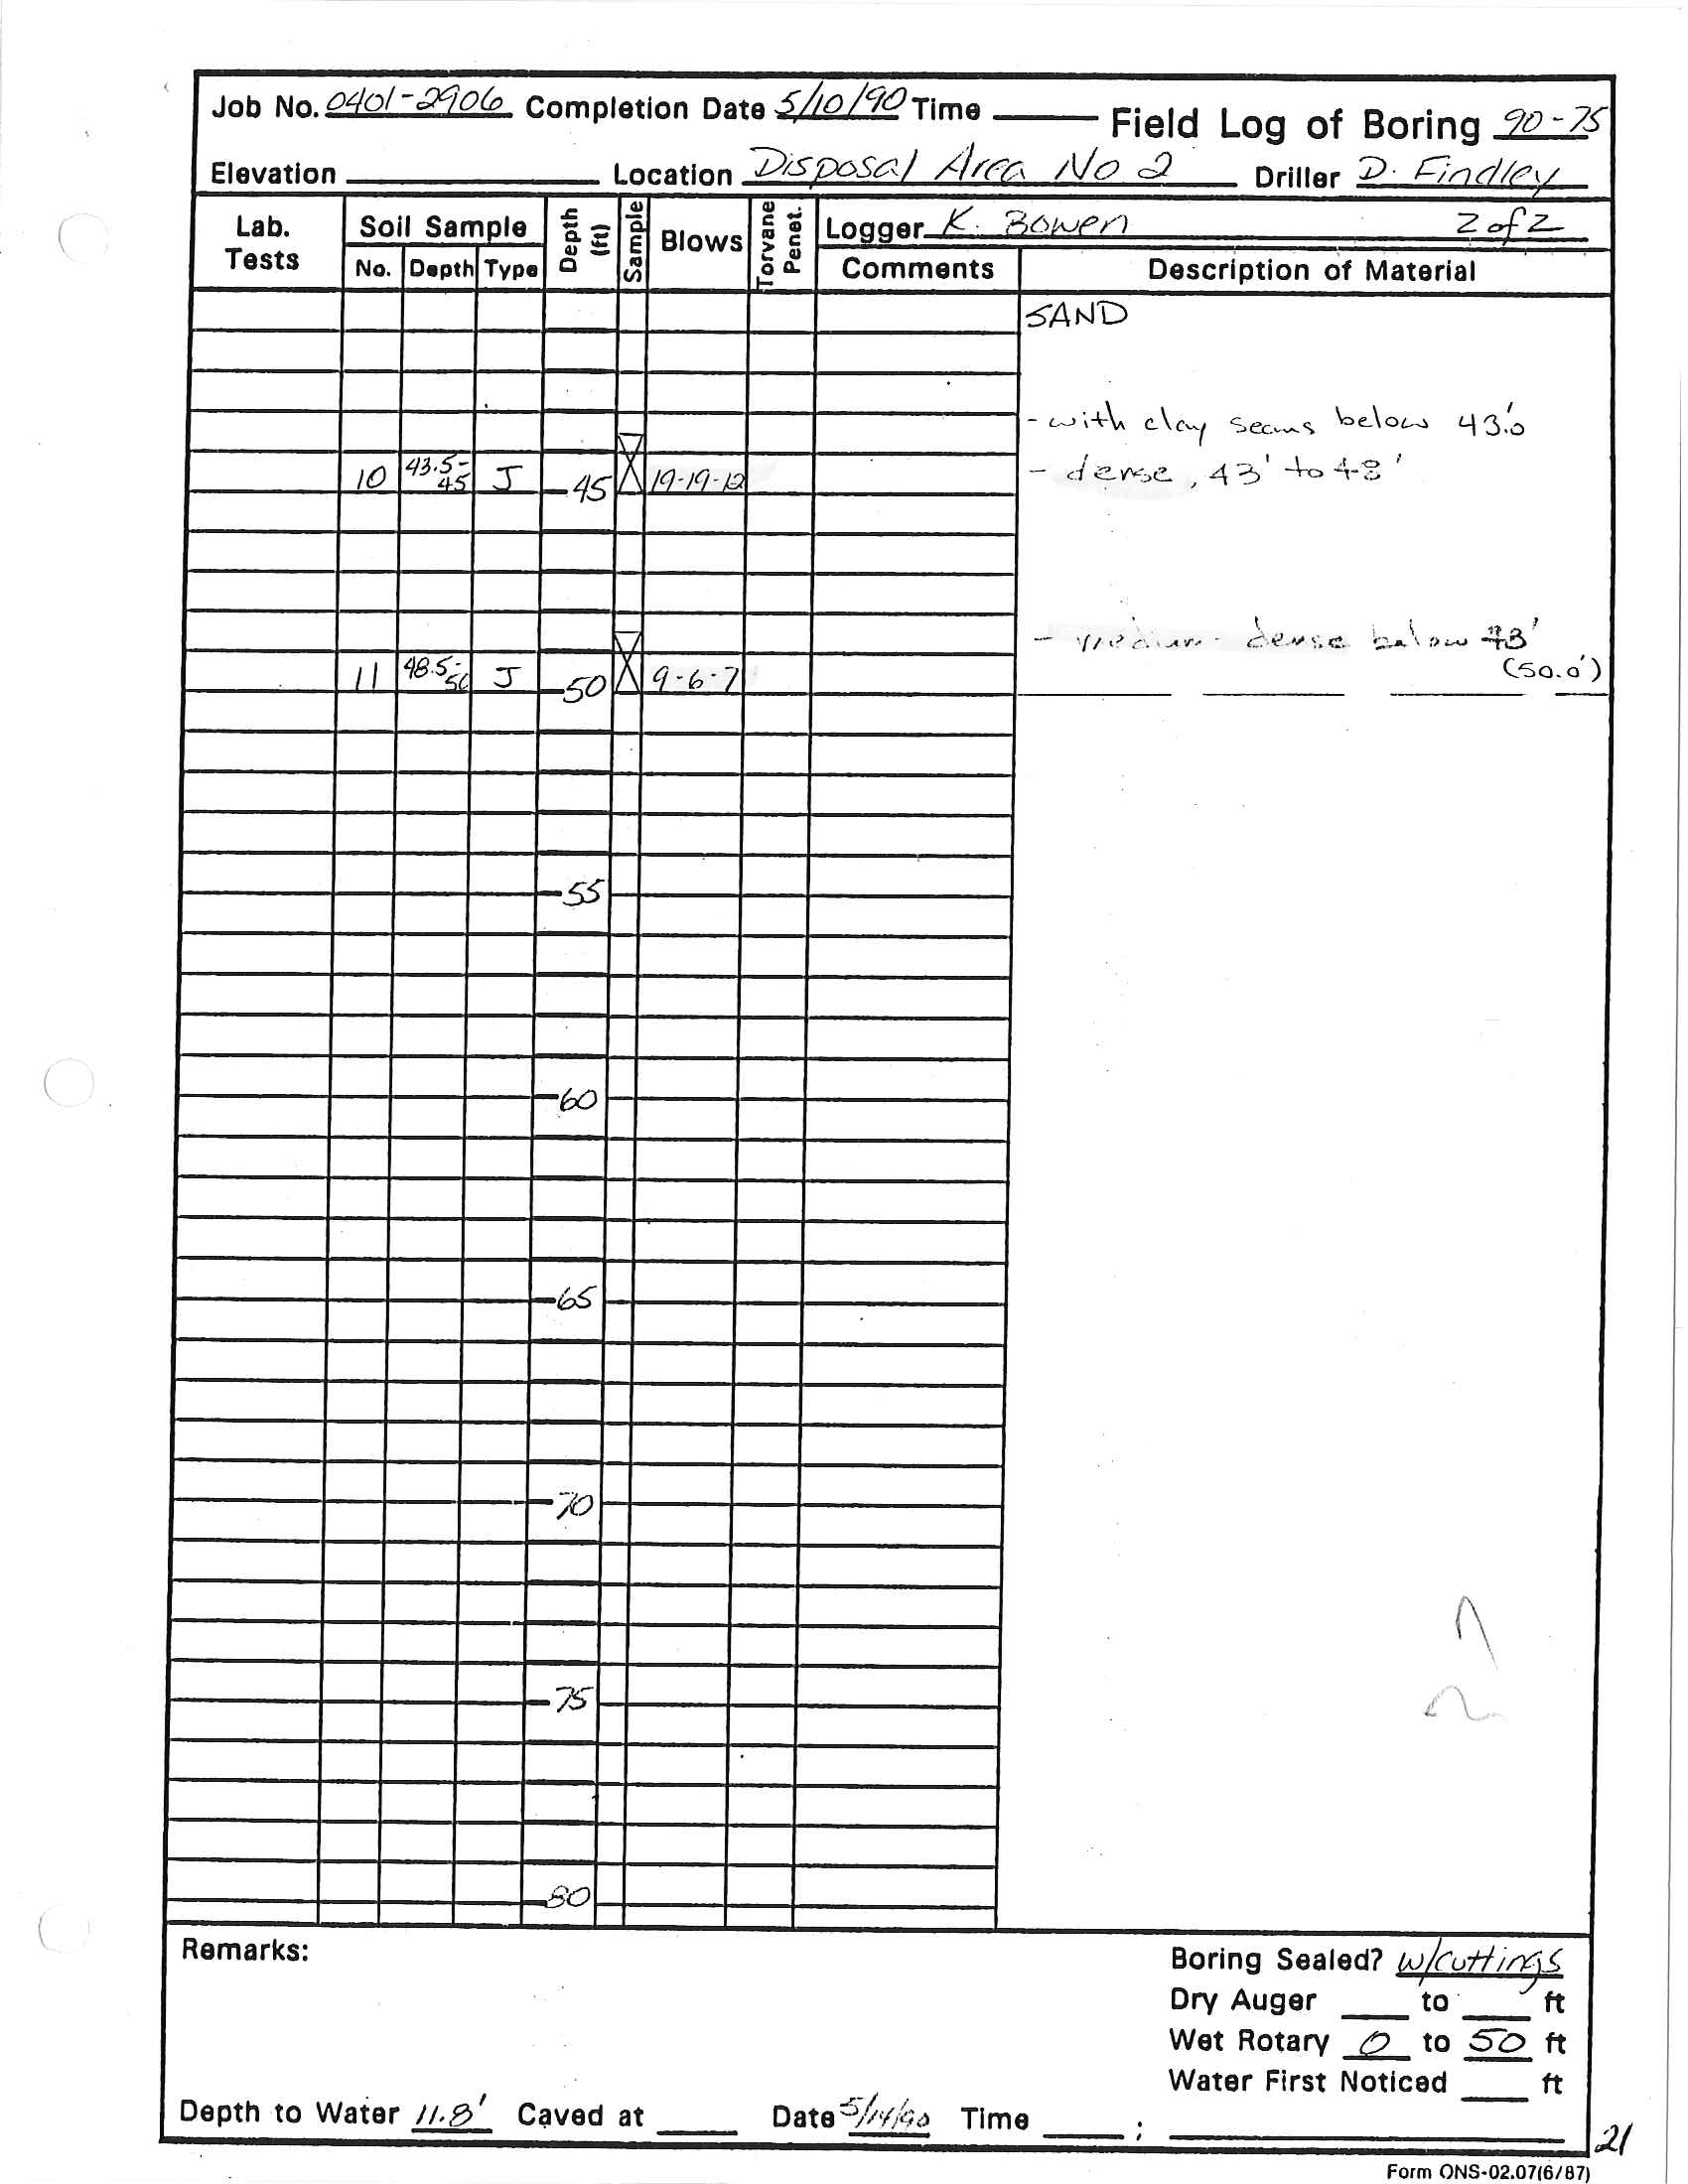 Job No. 0401-2906 Completion Date 5/10/90 Time Field Log of Boring 90-75
Elevation Location Disposal Area No 2 Driller D. Findley
Lab. Tests Soil Sample No. Depth Type Depth (ft) Sample Blows Torvane Penet. Logger K. Bowen 2 of 2
Comments Description of Material
SAND
- with clay seams below 43.0'
10 43.5-45 J 45 19-19-12 - dense, 43' to 48'
- medium-dense below 48'
11 48.5-50 J 50 9-6-7 (50.0')
55
60
65
70
75
80
Remarks:
Boring Sealed? w/cuttings
Dry Auger to ft
Wet Rotary 0 to 50 ft
Water First Noticed ft
Depth to Water 11.8' Caved at Date 5/14/90 Time ;
21
Form ONS-02.07(6/87)